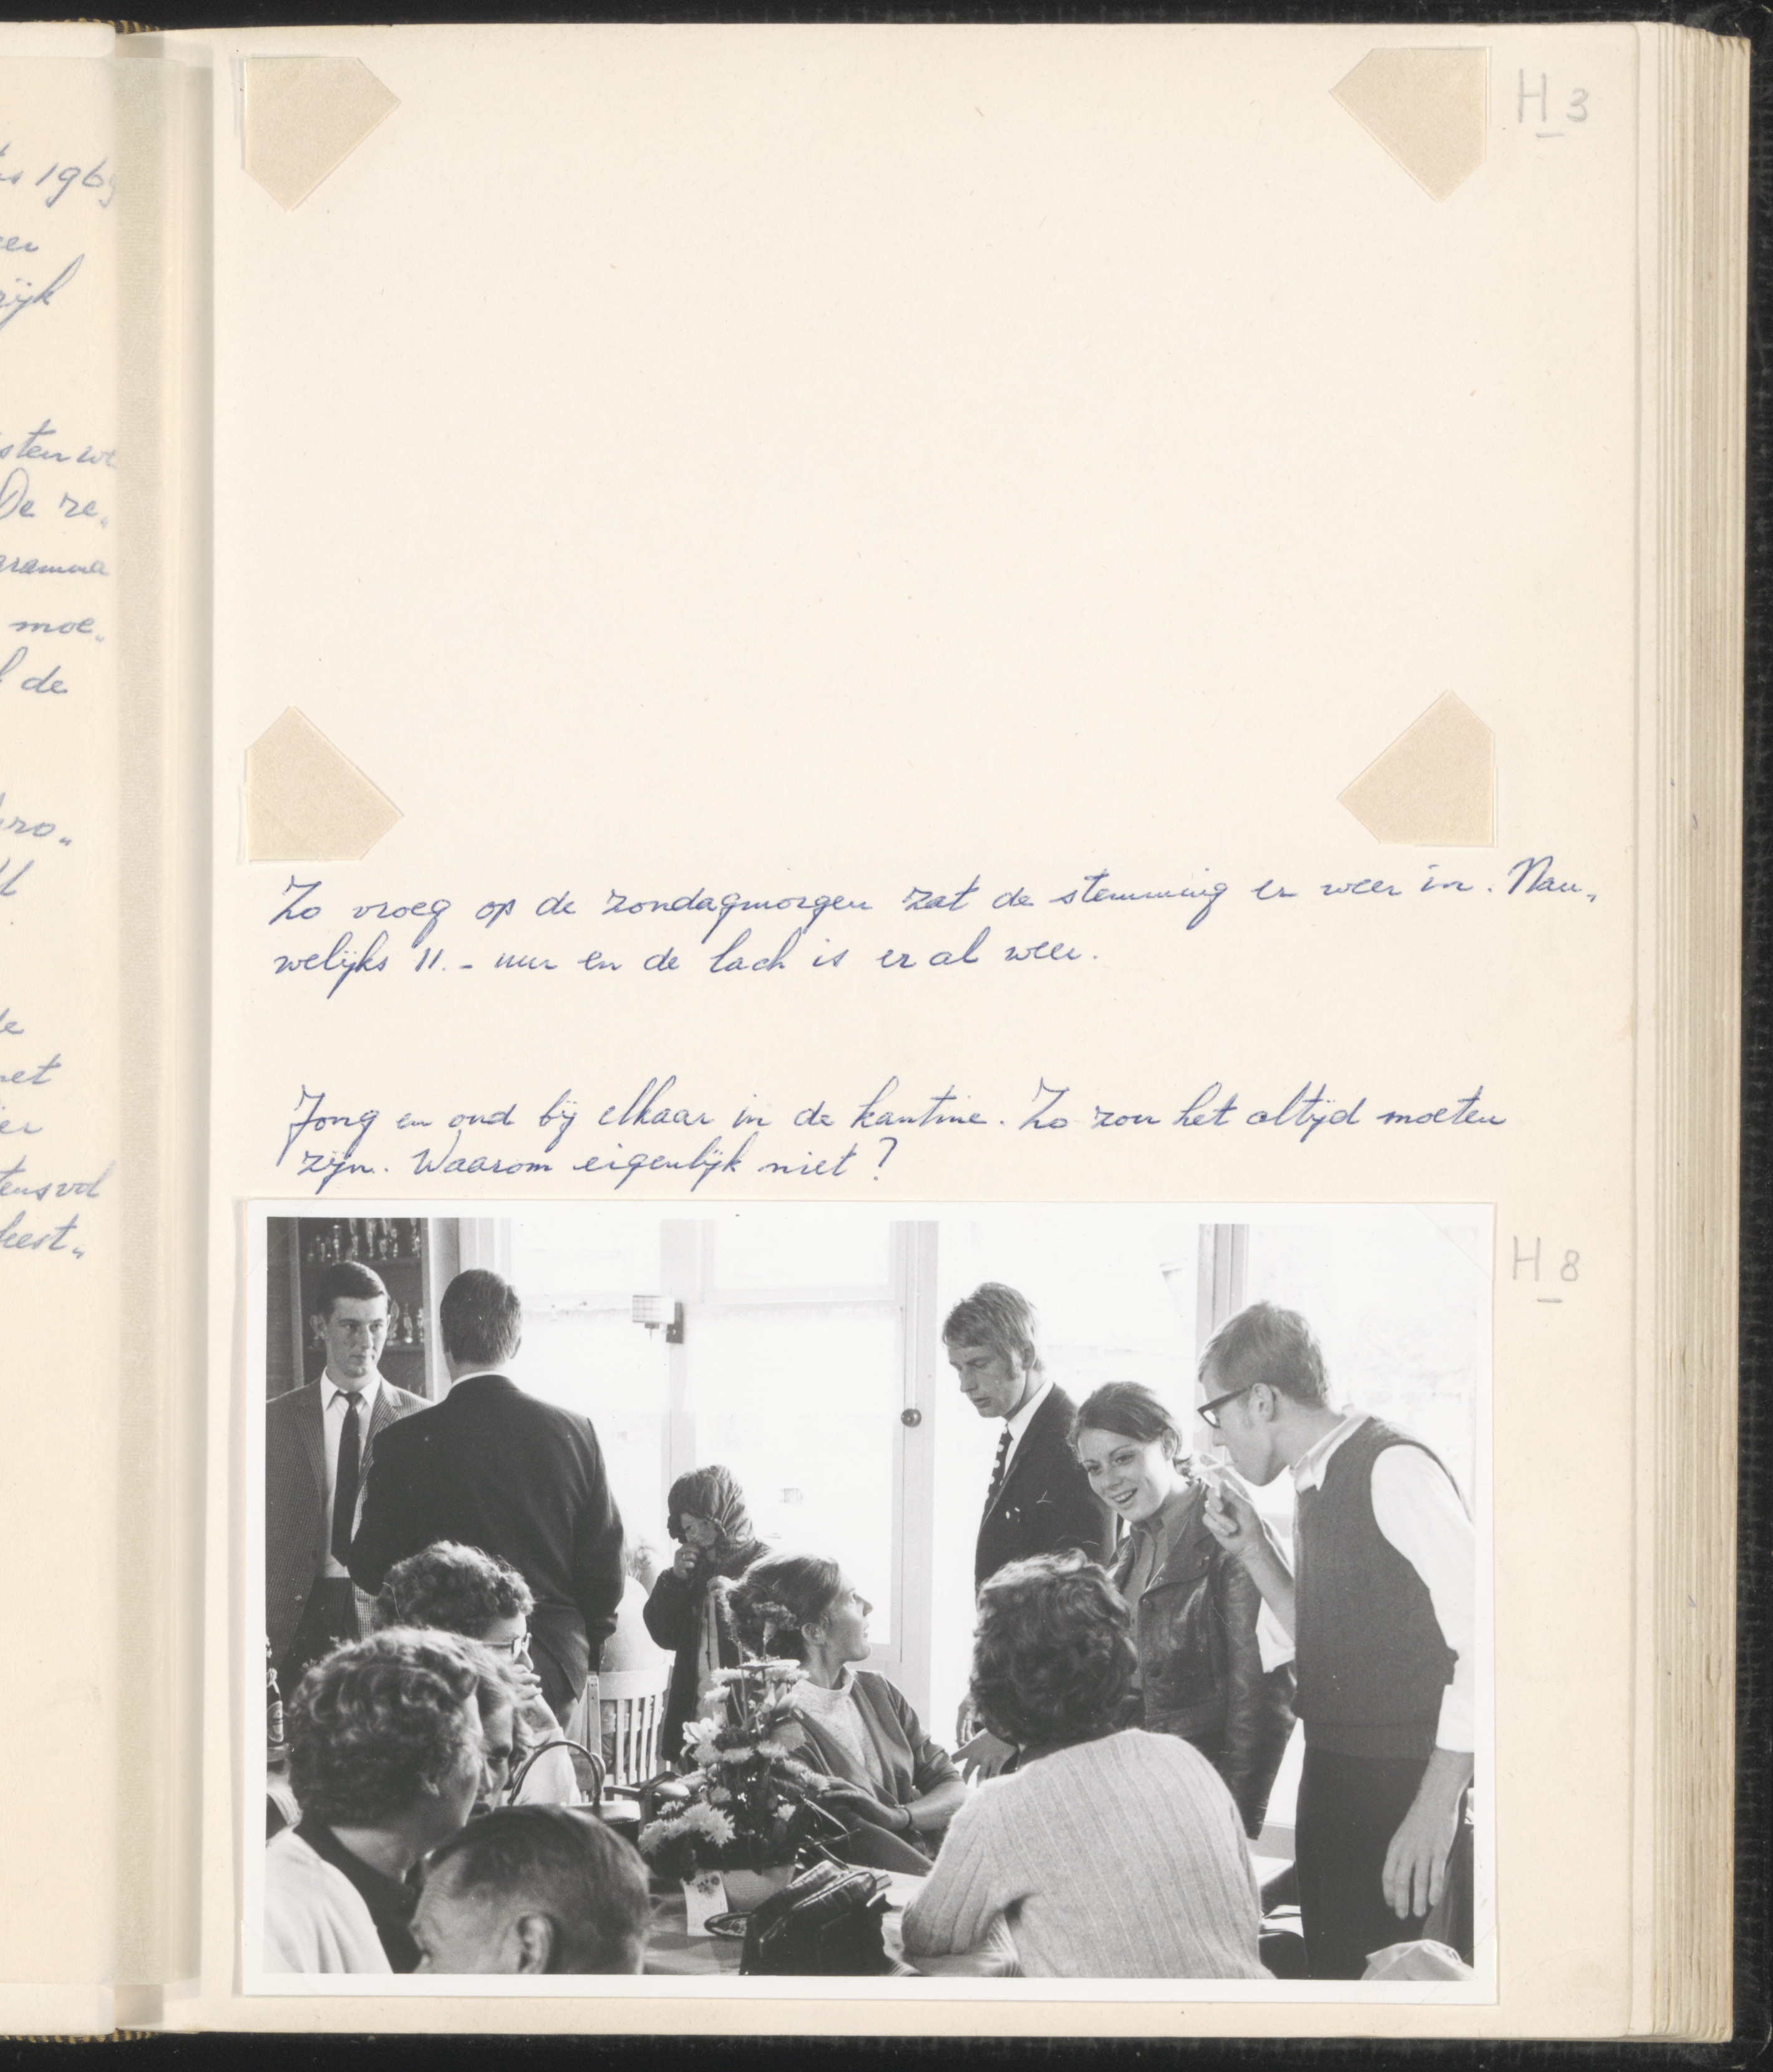 1969
rijk
De re„
gramma
moe„
de
pro„
H 3
Zo vroeg op de zondagmorgen zat de stemming er weer in. Nau„
welijks 11.- uur en de lach is er al weer.
Jong en oud bij elkaar in de kantine. Zo zou het altijd moeten
zijn. Waarom eigenlijk niet?
H 8